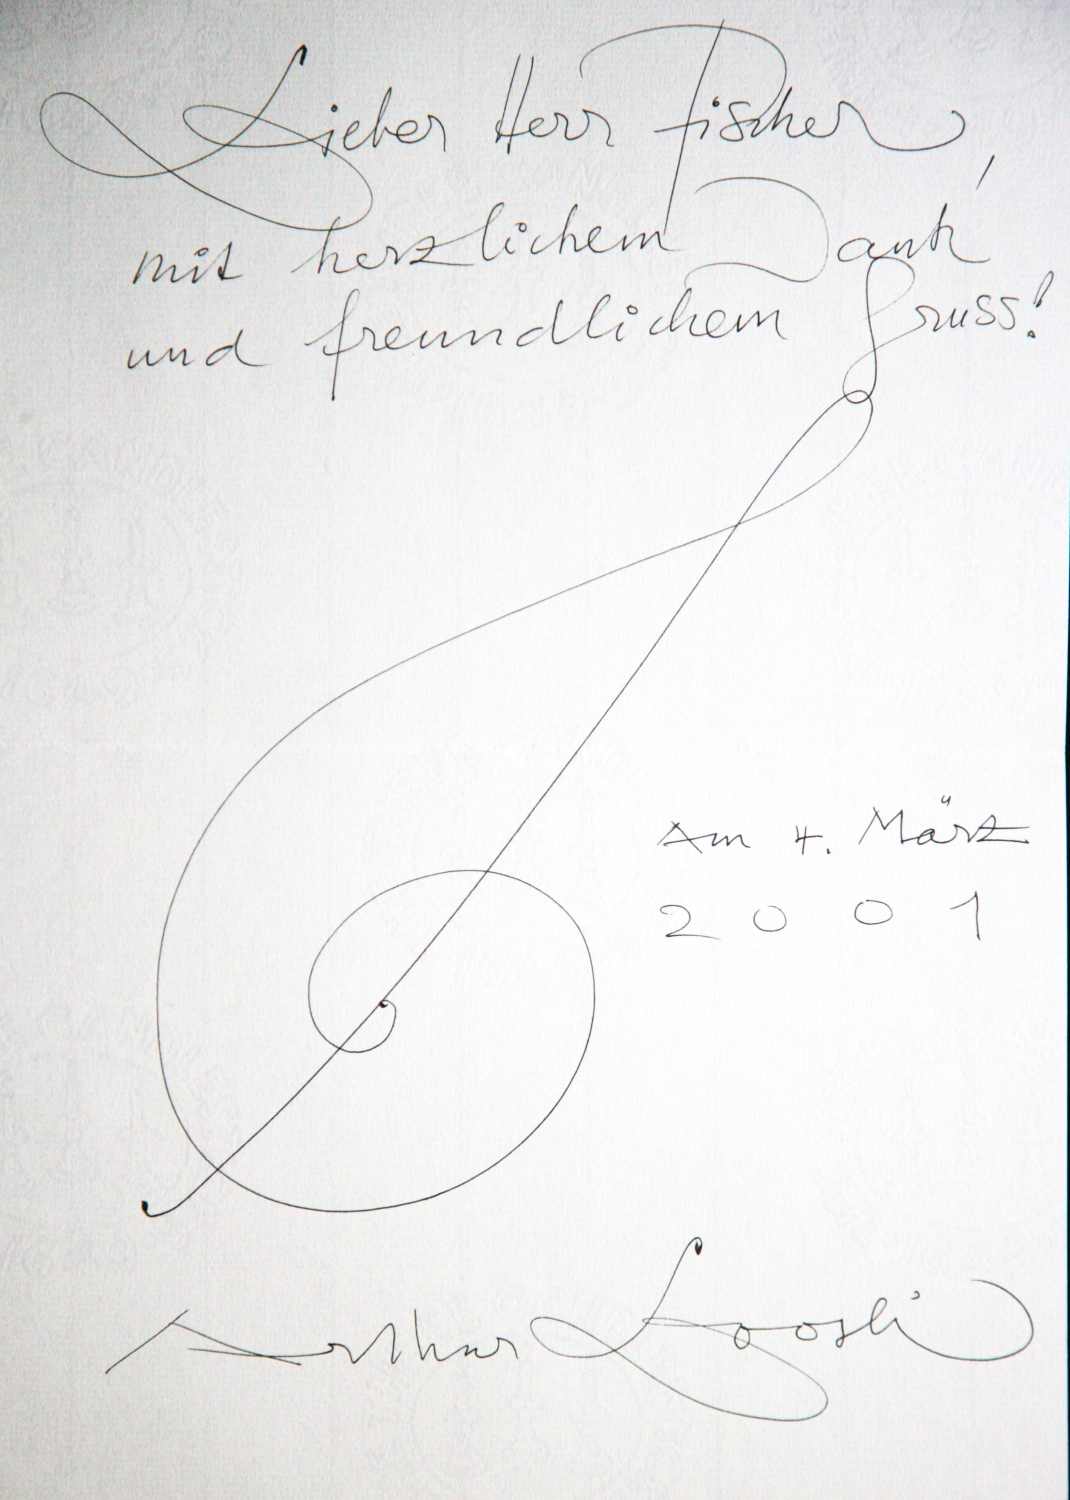 Lieber Herr Fischer,
mit herzlichem Dank
und freundlichem Gruss!
Am 4. März
2001
Arthur Loosli